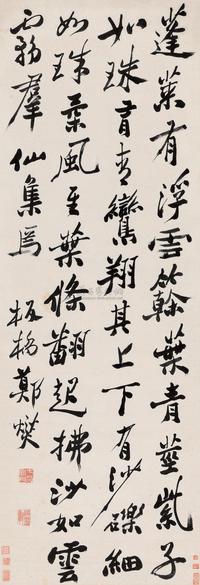 蓬莱有浮雲簳葉青莖紫子
如珠有青鸞翔其上下有沙礫細
如珠叢風至葉條翻起拂沙如雲
霧群仙集焉 板橋鄭燮